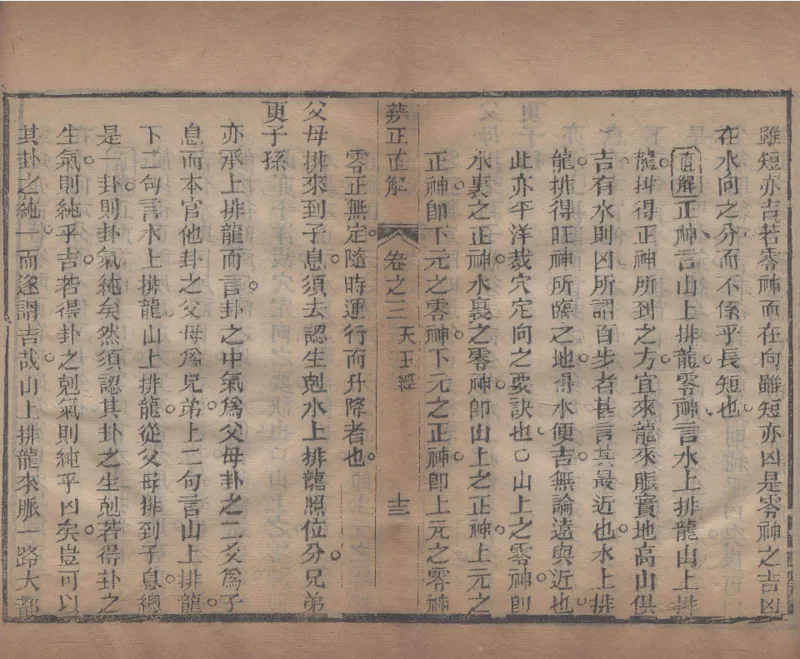 雖短亦吉若零神而在向雖短亦凶是零神之吉凶
在水向之分而不係乎長短也
直解正神言山上排龍零神言水上排龍山上排
龍排得正神所到之方宜來龍來脈實地高山俱
吉有水則凶所謂百步者甚言其最近也水上排
龍排得旺神所臨之地得水便吉無論遠與近也
此亦平洋裁穴定向之要訣也○山上之零神卽
水裏之正神水裏之零神卽山上之正神上元之
正神卽下元之零神下元之正神卽上元之零神
辨正直解 卷之三 天玉經 十三
零正無定隨時運行而升降者也
父母排來到子息須去認生剋水上排龍照位分兄弟
更子孫
亦承上排龍而言卦之中氣爲父母卦之二爻爲子
息而本宮他卦之父母爲兄弟上二句言山上排龍
下二句言水上排龍山上排龍從父母排到子息總
是一卦則卦氣純矣然須認其卦之生剋若得卦之
生氣則純乎吉若得卦之剋氣則純乎凶矣豈可以
其卦之純一而遂謂吉哉山上排龍來脈一路大都